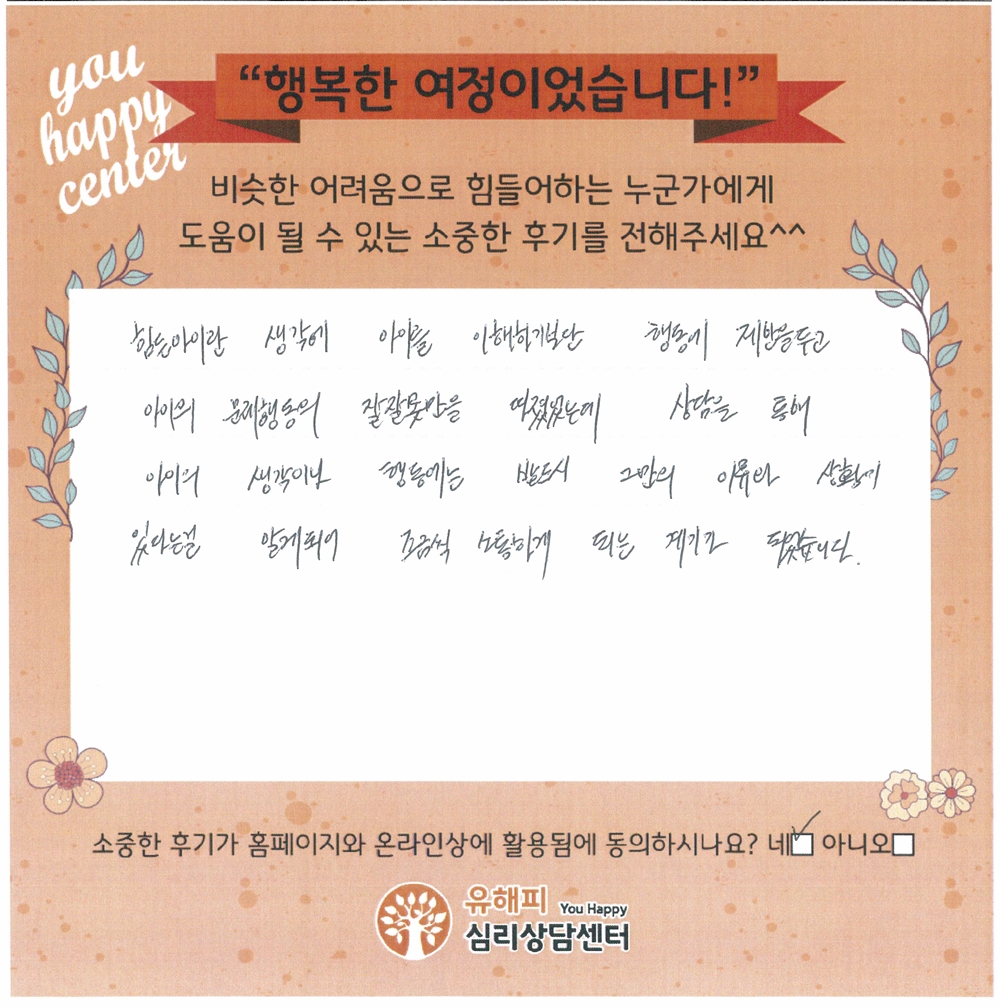 you
happy
center
“행복한 여정이었습니다!”
비슷한 어려움으로 힘들어하는 누군가에게
도움이 될 수 있는 소중한 후기를 전해주세요^^
힘든아이란 생각에 아이를 이해하기보단 행동에 제반을두고
아이의 문제행동의 잘잘못만을 따졌었는데 상담을 통해
아이의 생각이나 행동에는 반드시 그만의 이유와 상황이
있다는걸 알게되어 조금씩 소통하게 되는 계기가 되었습니다.
소중한 후기가 홈페이지와 온라인상에 활용됨에 동의하시나요? 네 아니오
유해피 You Happy
심리상담센터